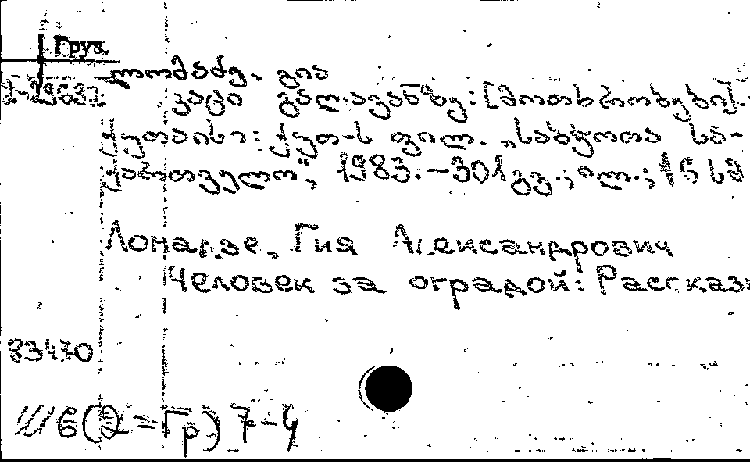 Груз.
ლომაძე, გია
კაცი გალავანზე: [მოთხრობები].-
ქუთაისი: ქუთ-ს ფილ. „საბჭოთა სა-
ქართველო“, 1983.-301გვ.; ილ.; 16 სმ
Ломадзе, Гия Александрович
Человек за оградой: Рассказы
83470
Ш6(2=Гр)7-4